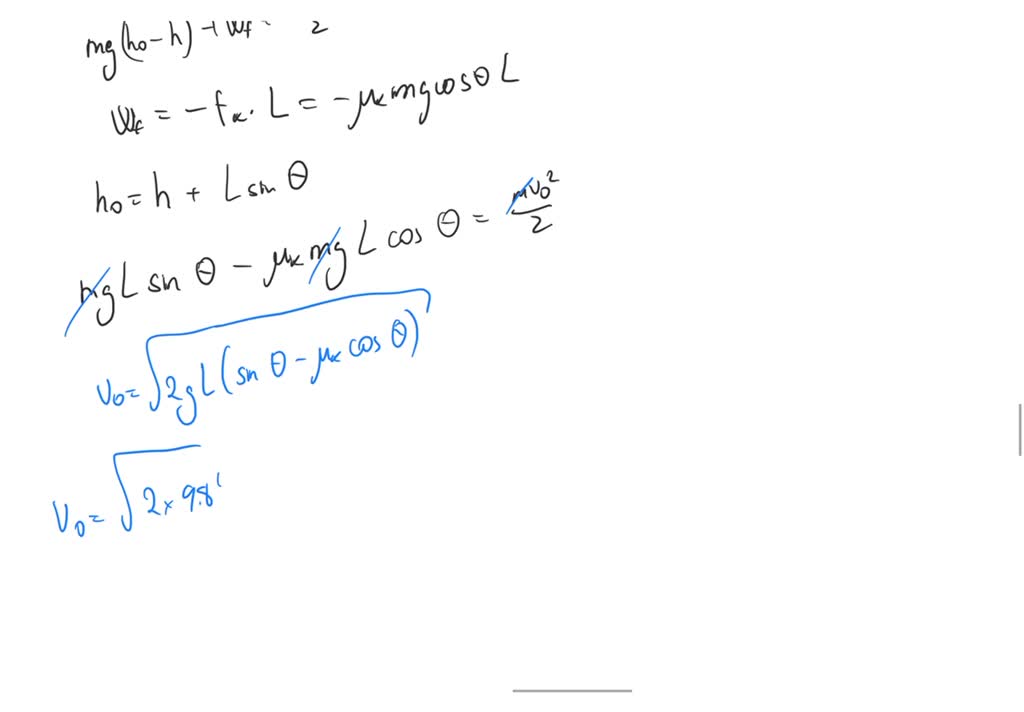 mg(h₀-h)+Wf = 2
Wf = -fₖ. L = -μₖ mg cosθ L
h₀ = h + L sin θ
mgL sin θ - μₖ mg L cos θ = mv₀²/2
v₀ = √2gL(sin θ - μₖ cos θ)
v₀ = √2× 9.8